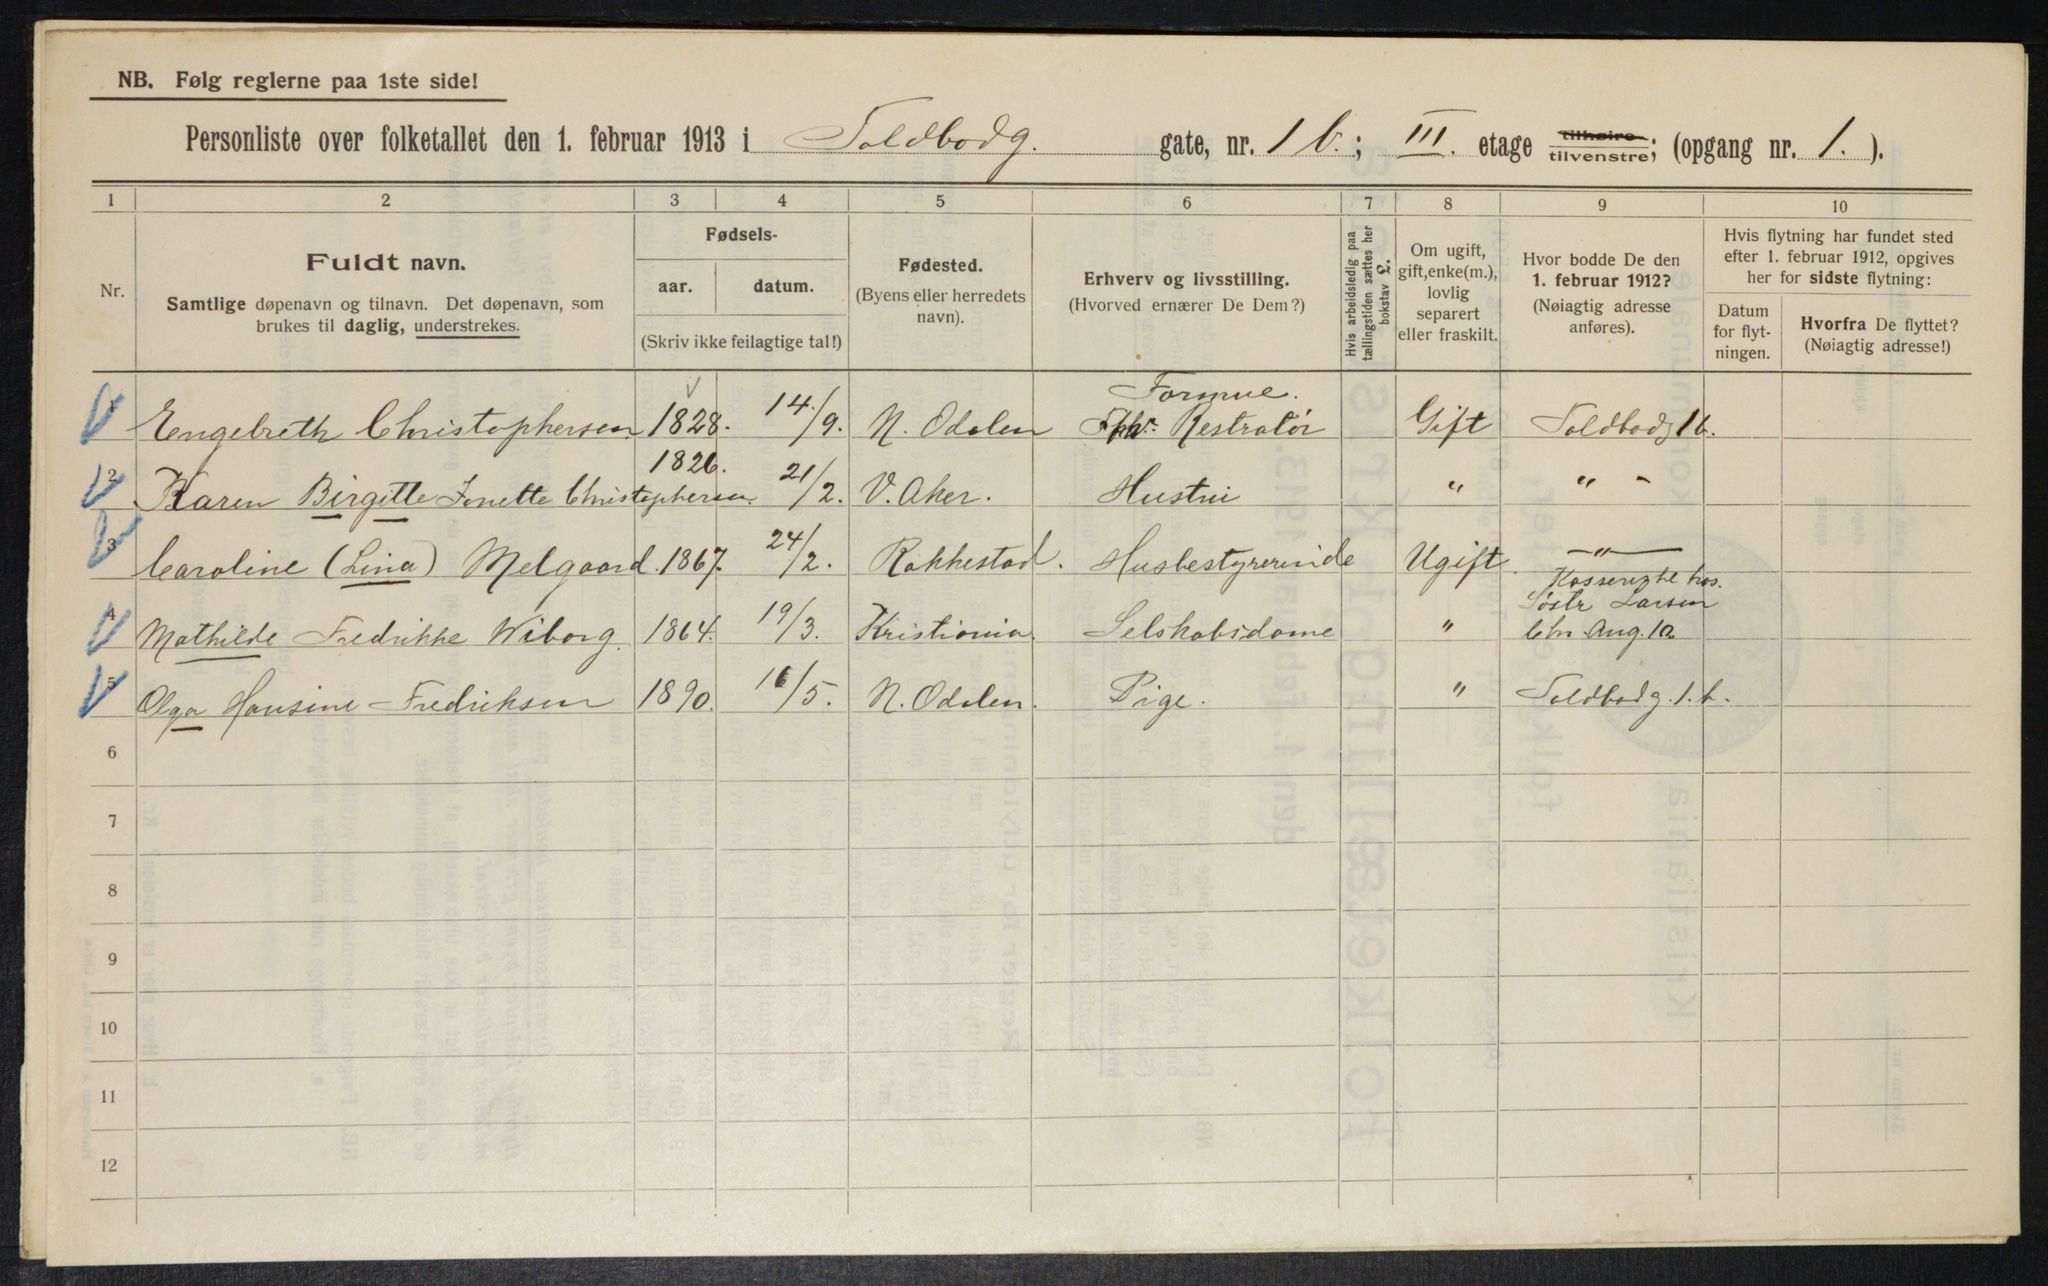 NB. Følg reglerne paa 1ste side!
Personliste over folketallet den 1. februar 1913 i Toldbodg. gate, nr. 1 b.; III. etage tilhøire tilvenstre; (opgang nr. 1.).
1 2 3 4 5 6 7 8 9 10
Nr.
Fuldt navn.
Samtlige døpenavn og tilnavn. Det døpenavn, som
brukes til daglig, understrekes.
Fødsels-
aar. datum.
(Skriv ikke feilagtige tal!)
Fødested.
(Byens eller herredets
navn).
Erhverv og livsstilling.
(Hvorved ernærer De Dem?)
Hvis arbeidsledig paa
tællingstiden sættes her
bokstav £.
Om ugift,
gift, enke(m.),
lovlig
separert
eller fraskilt.
Hvor bodde De den
1. februar 1912?
(Nøiagtig adresse
anføres).
Hvis flytning har fundet sted
efter 1. februar 1912, opgives
her for sidste flytning:
Datum
for flyt-
ningen.
Hvorfra De flyttet?
(Nøiagtig adresse!)
Formue.
1 Engebreth Christophersen 1828. 14./9. N. Odalen Restratør Gift Toldbodg 1 b.
2 Karen Birgitte Jenette Christophersen 1826. 21/2. V. Aker. Hustru " " -
3 Caroline (Lina) Melgaard. 1867. 24/2. Rakkestad. Husbestyrerinde Ugift. —"—
Søstr Larsen
4 Mathilde Fredrikke Wiborg. 1864. 19/3. Kristiania. Selskabsdame " Chr. Aug. 10.
5 Olga Hansine Fredriksen 1890. 16/5. N. Odalen. Pige. " Toldbodg. 1. b.
6
7
8
9
10
11
12